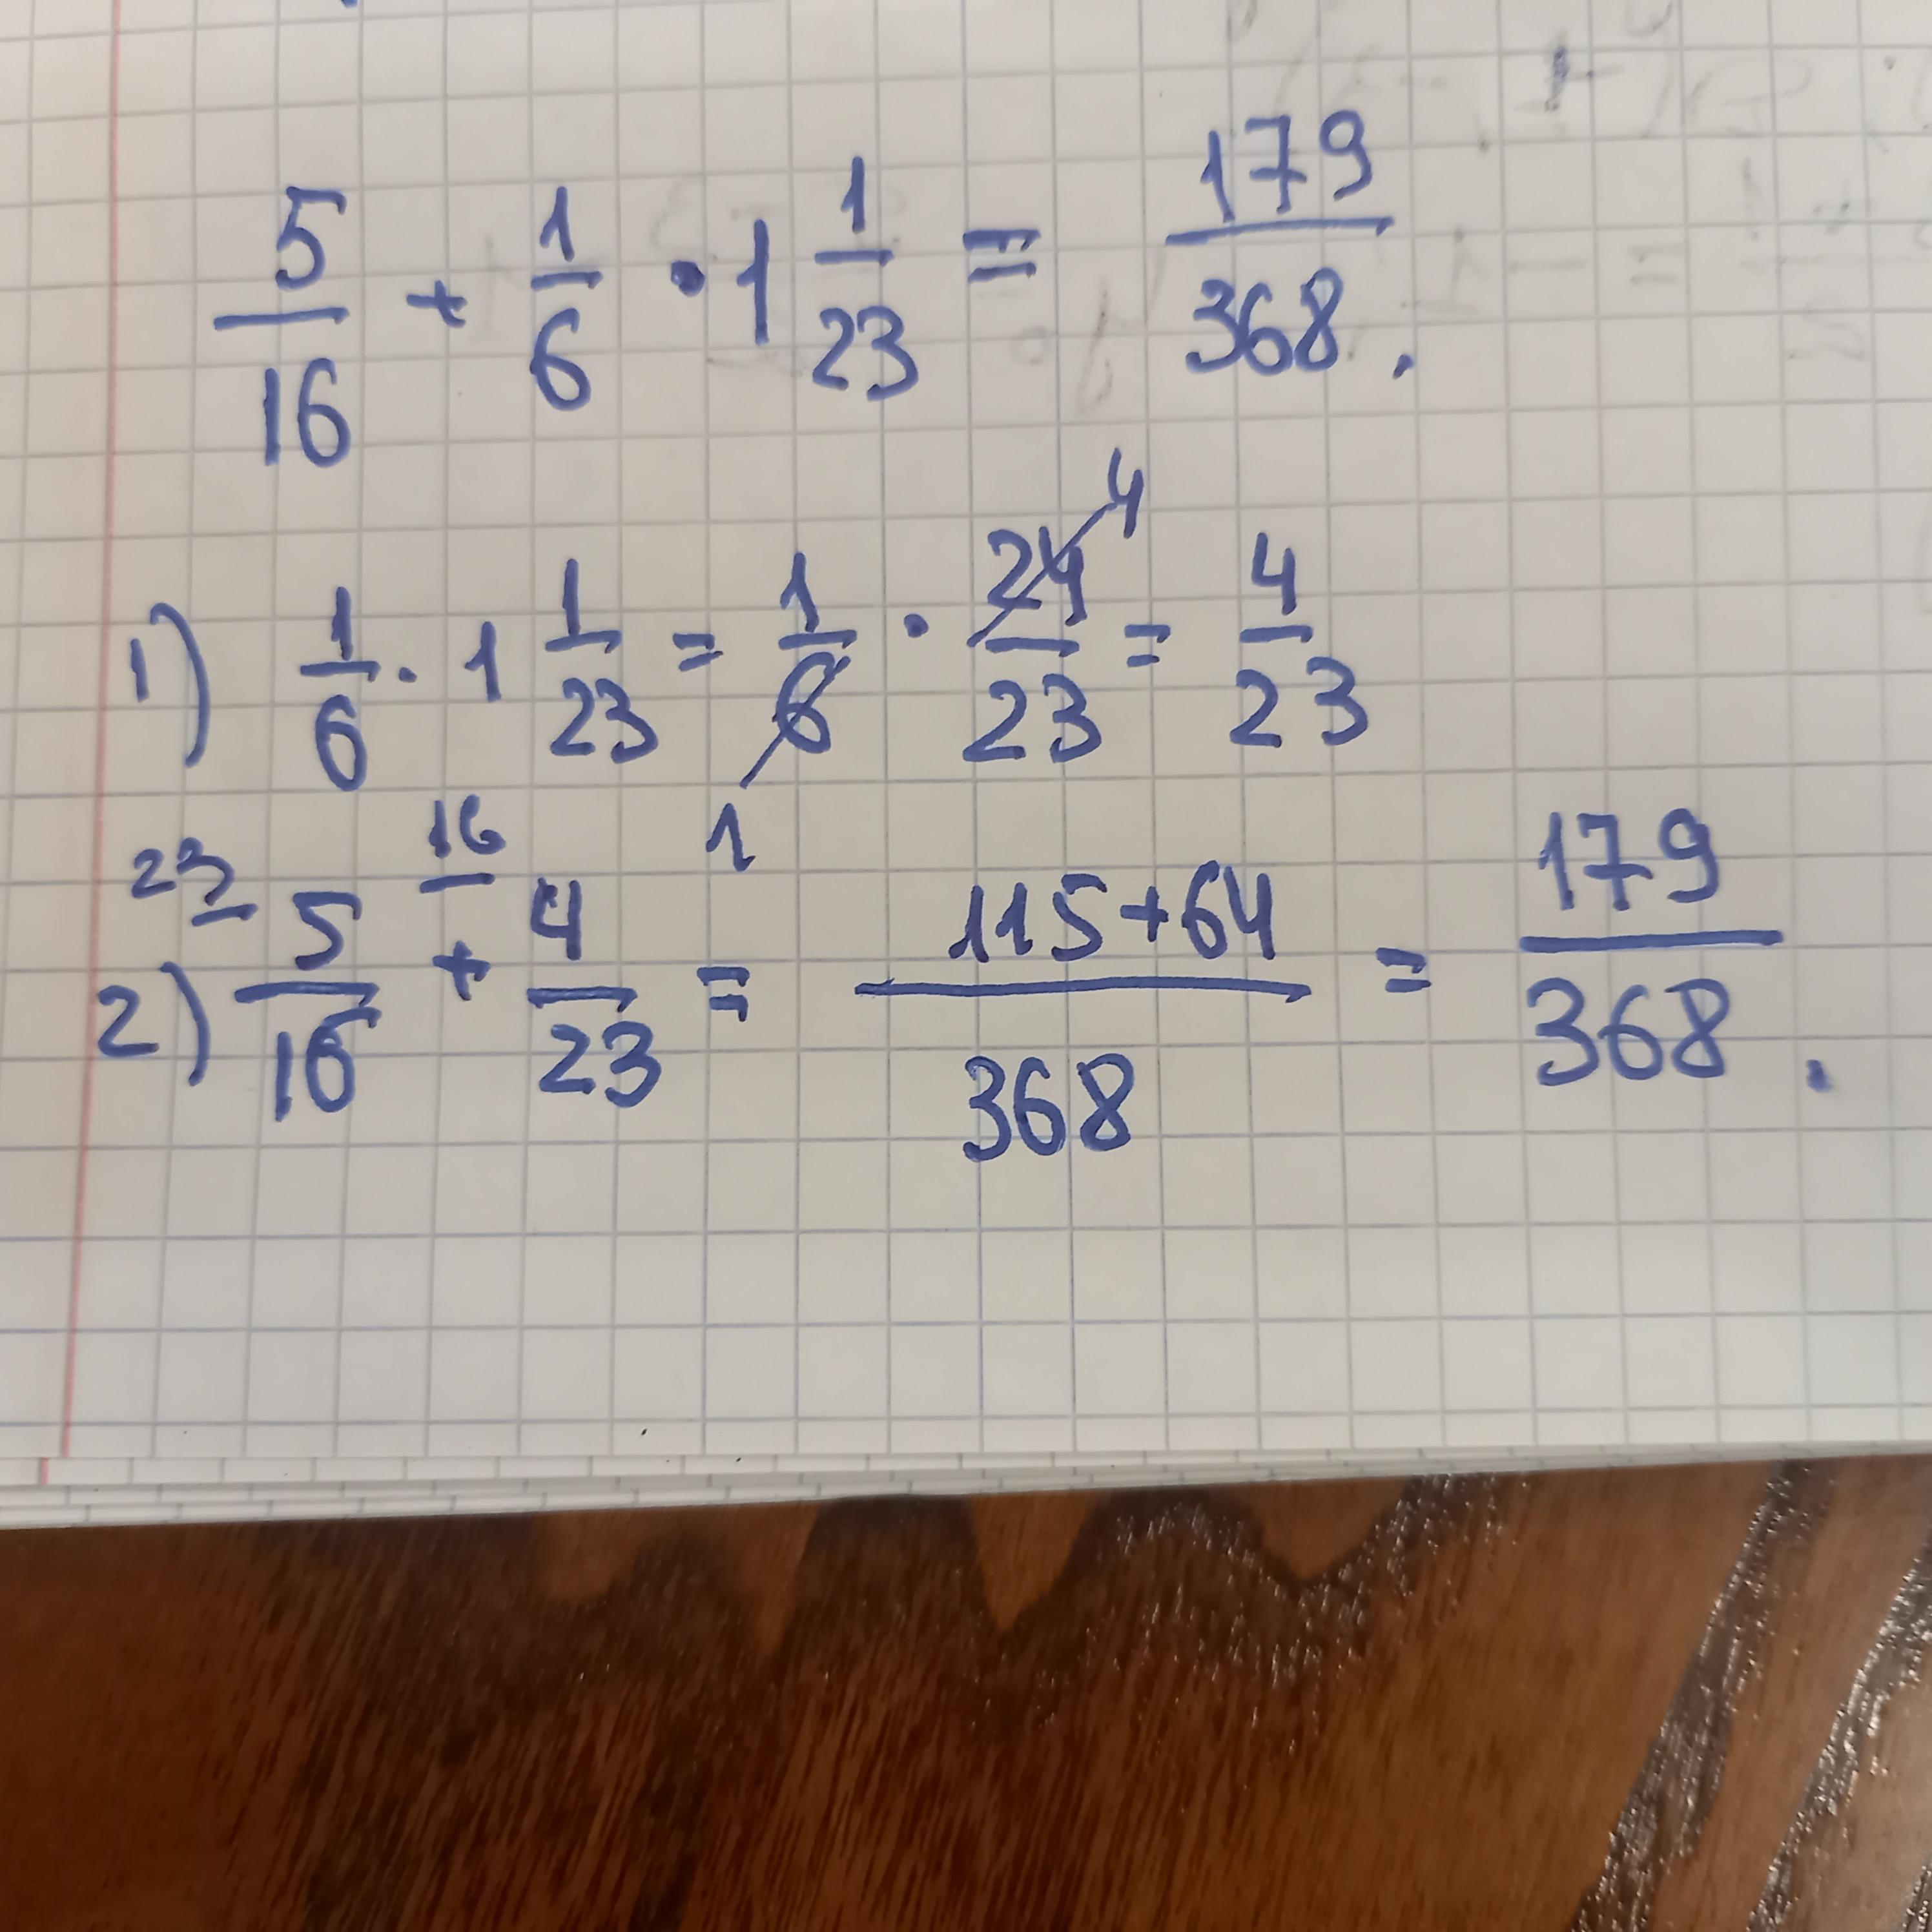 5/16 + 1/6 · 1 1/23 = 179/368.
1) 1/6 · 1 1/23 = 1/6 1 · 24/23 4 = 4/23
2) 23 5/16 + 16 4/23 = 115+64/368 = 179/368.